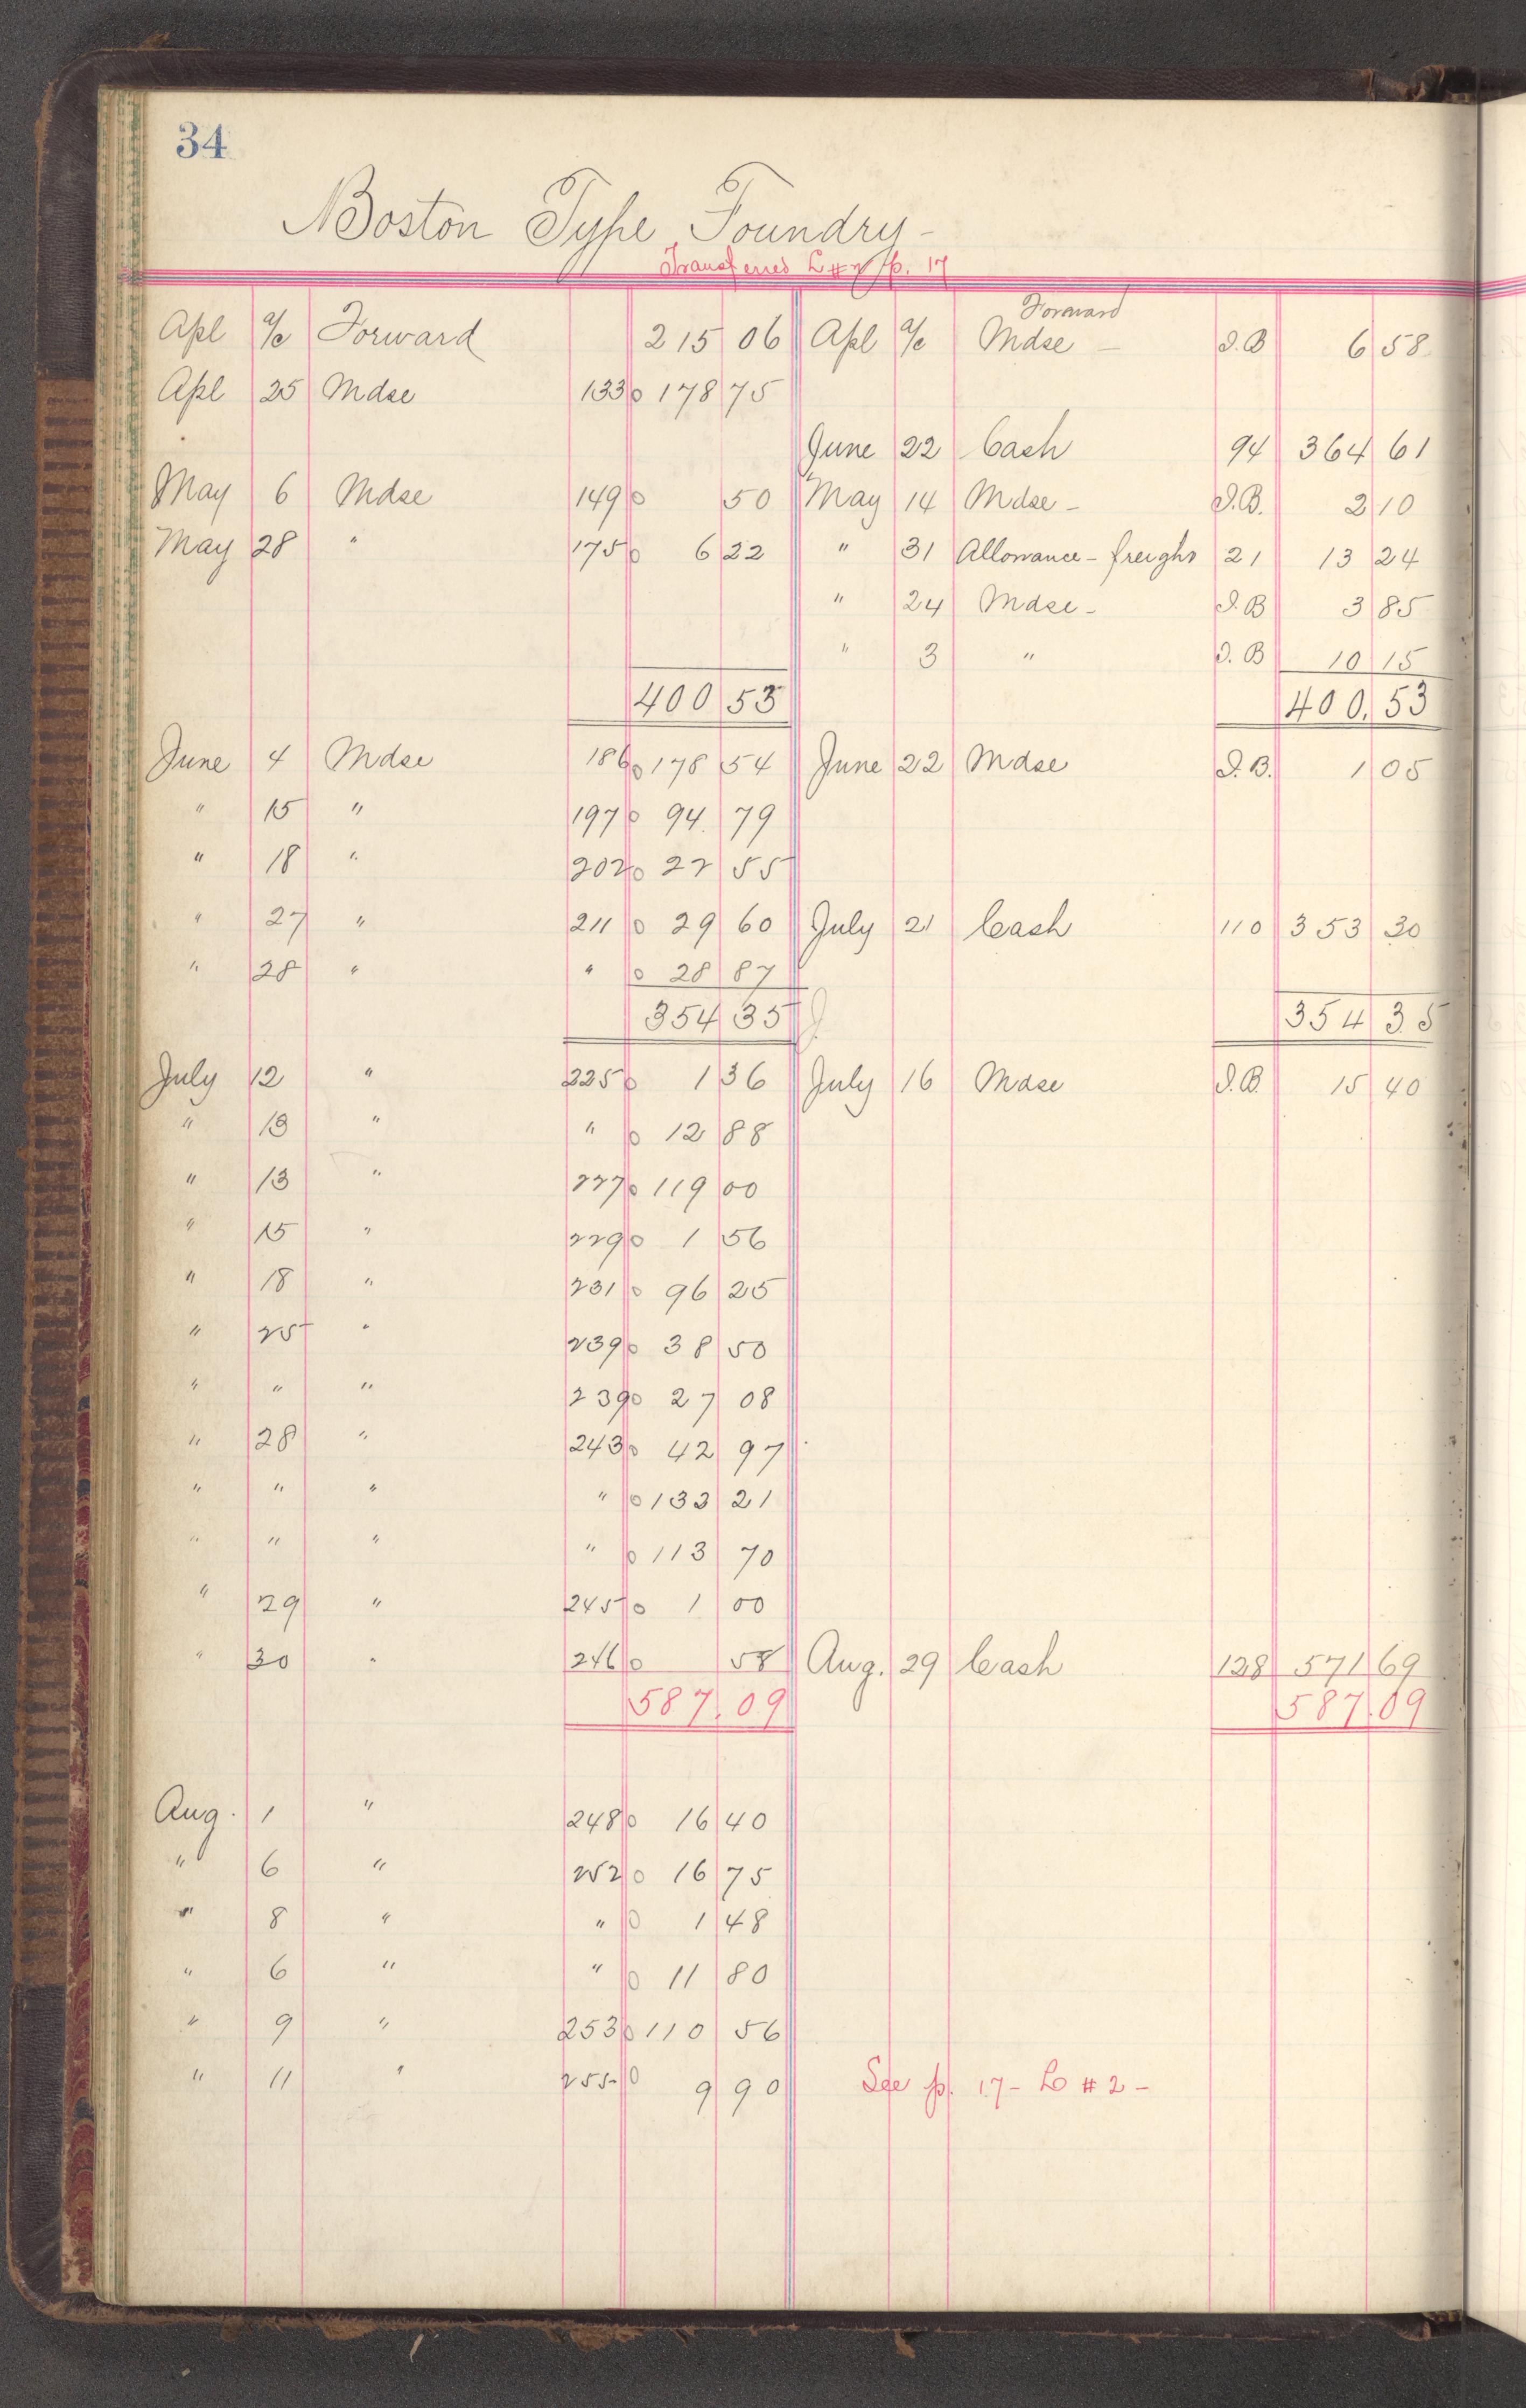 34
Boston Type Foundry -
Transferred L#2 p. 17
Apl a/c Forward 215 06 Apl a/c Forward Mdse - I.B 6 58
Apl 25 Mdse 133 0 178 75
June 22 Cash 94 364 61
May 6 Mdse 149 0 50 May 14 Mdse - I.B. 2 10
May 28 " 175 0 6 22 " 31 Allowance - freight 21 13 24
" 24 Mdse - I.B 3 85
" 3 " I.B 10 15
400 53 400.53
June 4 Mdse 186 0 178 54 June 22 Mdse I.B. 1 05
" 15 " 197 0 94. 79
" 18 " 202 0 22 55
" 27 " 211 0 29 60 July 21 Cash 110 353 30
" 28 " " 0 28 87
354 35 354 35
July 12 " 225 0 1 36 July 16 Mdse I.B. 15 40
" 13 " " 0 12 88
" 13 " 227 0 119 00
" 15 " 229 0 1 56
" 18 " 231 0 96 25
" 25 " 239 0 38 50
" " " 239 0 27 08
" 28 " 243 0 42 97
" " " " 0 132 21
" " " " 0 113 70
" 29 " 245 0 1 00
" 30 " 246 0 58 Aug. 29 Cash 128 571 69
587.09 587.09
Aug. 1 " 248 0 16 40
" 6 " 252 0 16 75
" 8 " " 0 1 48
" 6 " " 0 11 80
" 9 " 253 0 110 56
" 11 " 255 0 9 90 See p. 17 - L #2 -